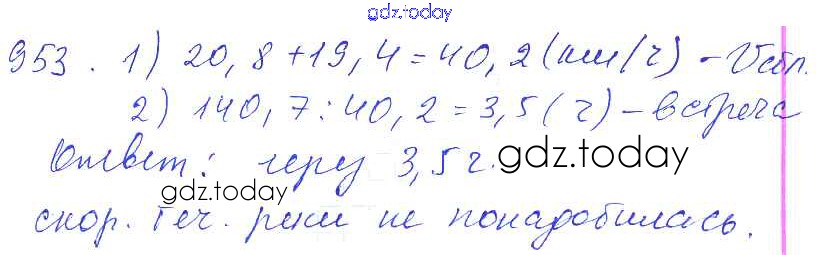 gdz.today
953. 1) 20,8+19,4=40,2(км/ч) - Vсбл.
2) 140,7:40,2=3,5(ч) - встреча
Ответ: через 3,5ч. gdz.today
gdz.today
скор. теч. реки не понадобилась.